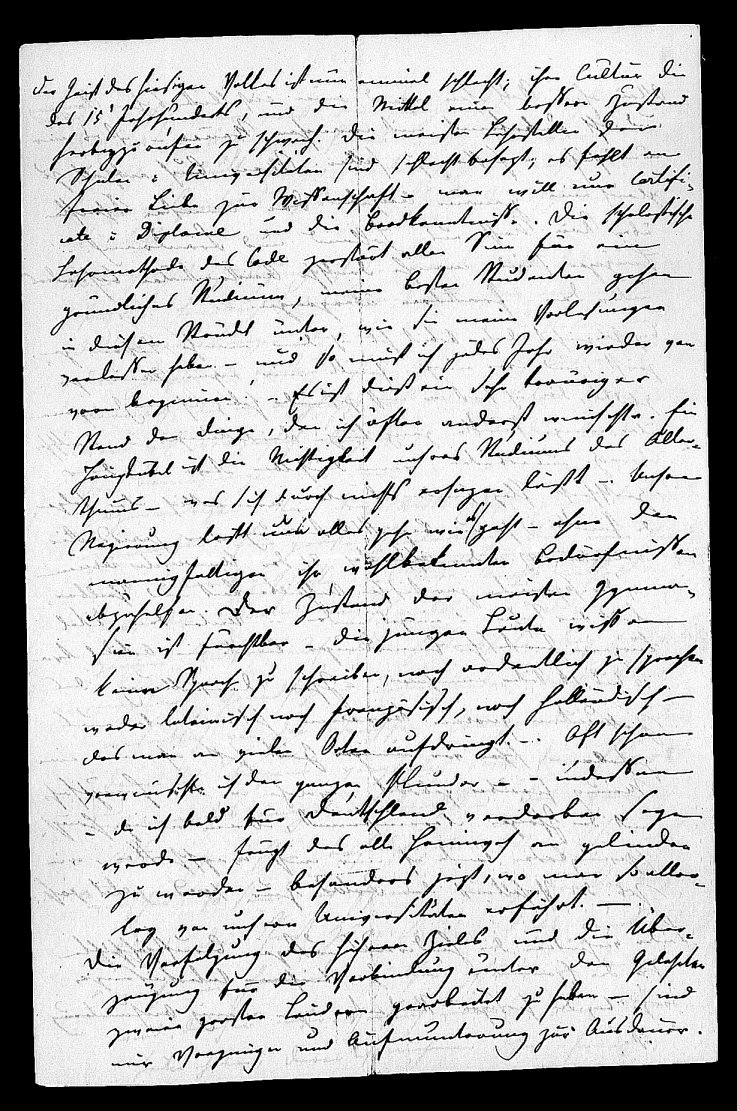 Der Geist des hiesigen Volkes ist nun einmal schlecht; ihre Cultur die
des 15t Jahrhunderts, und die Mittel einen bessern Zustand
herbeyzurufen zu schwach. Die meisten Lehrstellen der
Schulen u Universitäten sind schlecht besezt; es fehlt an
freier Liebe zur Wissenschaft – man will nur Certifi-
cate u Diplome und die Brodkenntniss. Die scholastische
Lehrmethode des Code zerstört allen Sinn für ein
gründliches Studium, meine besten Studenten gehen
in diesem Strudel unter, wie sie meine Vorlesungen
verlassen haben – und so muß ich jedes Jahr wieder von
vorn beginnen. – Es ist dieß ein sehr trauriger
Stand der Dinge, den ich öfter anders wünschte. Ein
Hauptübel ist die Nichtigkeit unseres Studiums des Alter-
thums – was sich durch nichts ersezen läßt –. Unsere
Regierung läßt nun alles gehn wie's geht – ohne den
mannigfaltigen ihr wohlbekannten Bedürfnissen
abzuhelfen. Der Zustand der meisten Gymna-
sien ist furchtbar – die jungen Leute wissen
keine Sprach zu schreiben, noch ordentlich zu sprechen
weder lateinisch noch französisch, noch holländisch –
das man an vielen Orten aufdringt –. Oft schon
verwünschte ich den ganzen Plunder – – indessen
– da ich bald für Deutschland verdorben seyn
werde – fängt das alte Heimweh an gelinder
zu werden – besonders jezt, wo man so aller-
ley von unsern Universitäten erfährt. – .
Die Verfolgung des höhern Ziels und die Über-
zeugung für die Verbindung unter den Gelehrten
zweier grosser Länder gearbeitet zu haben – sind
mir Vergnügen und Aufmunterung zur Ausdauer.